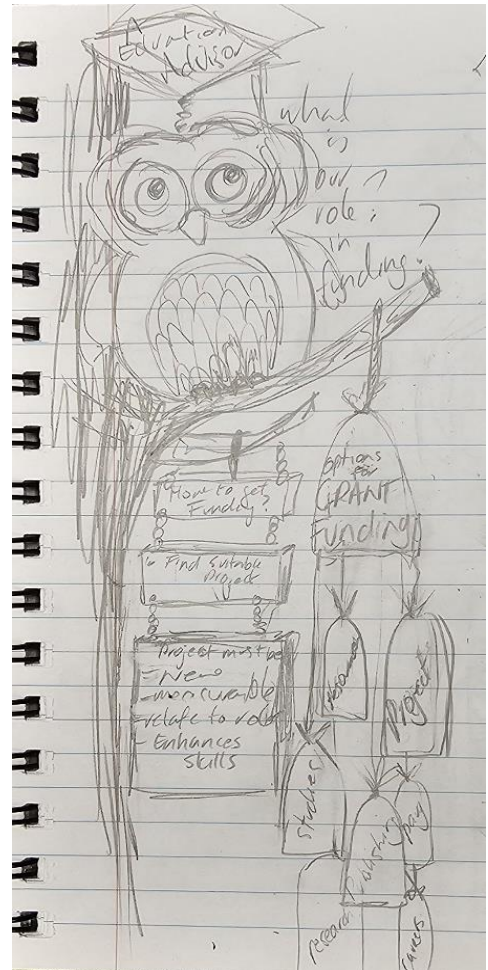 A
Edvation
Advisor
what
is
our
role
in
funding?
How to get
Funding?
Find Suitable
Project
Project must be
- New
- measurable
- relate to role
- Enhances
skills
options
for
GRANT
Funding
resources
Project
studies
Publishing
research
careers